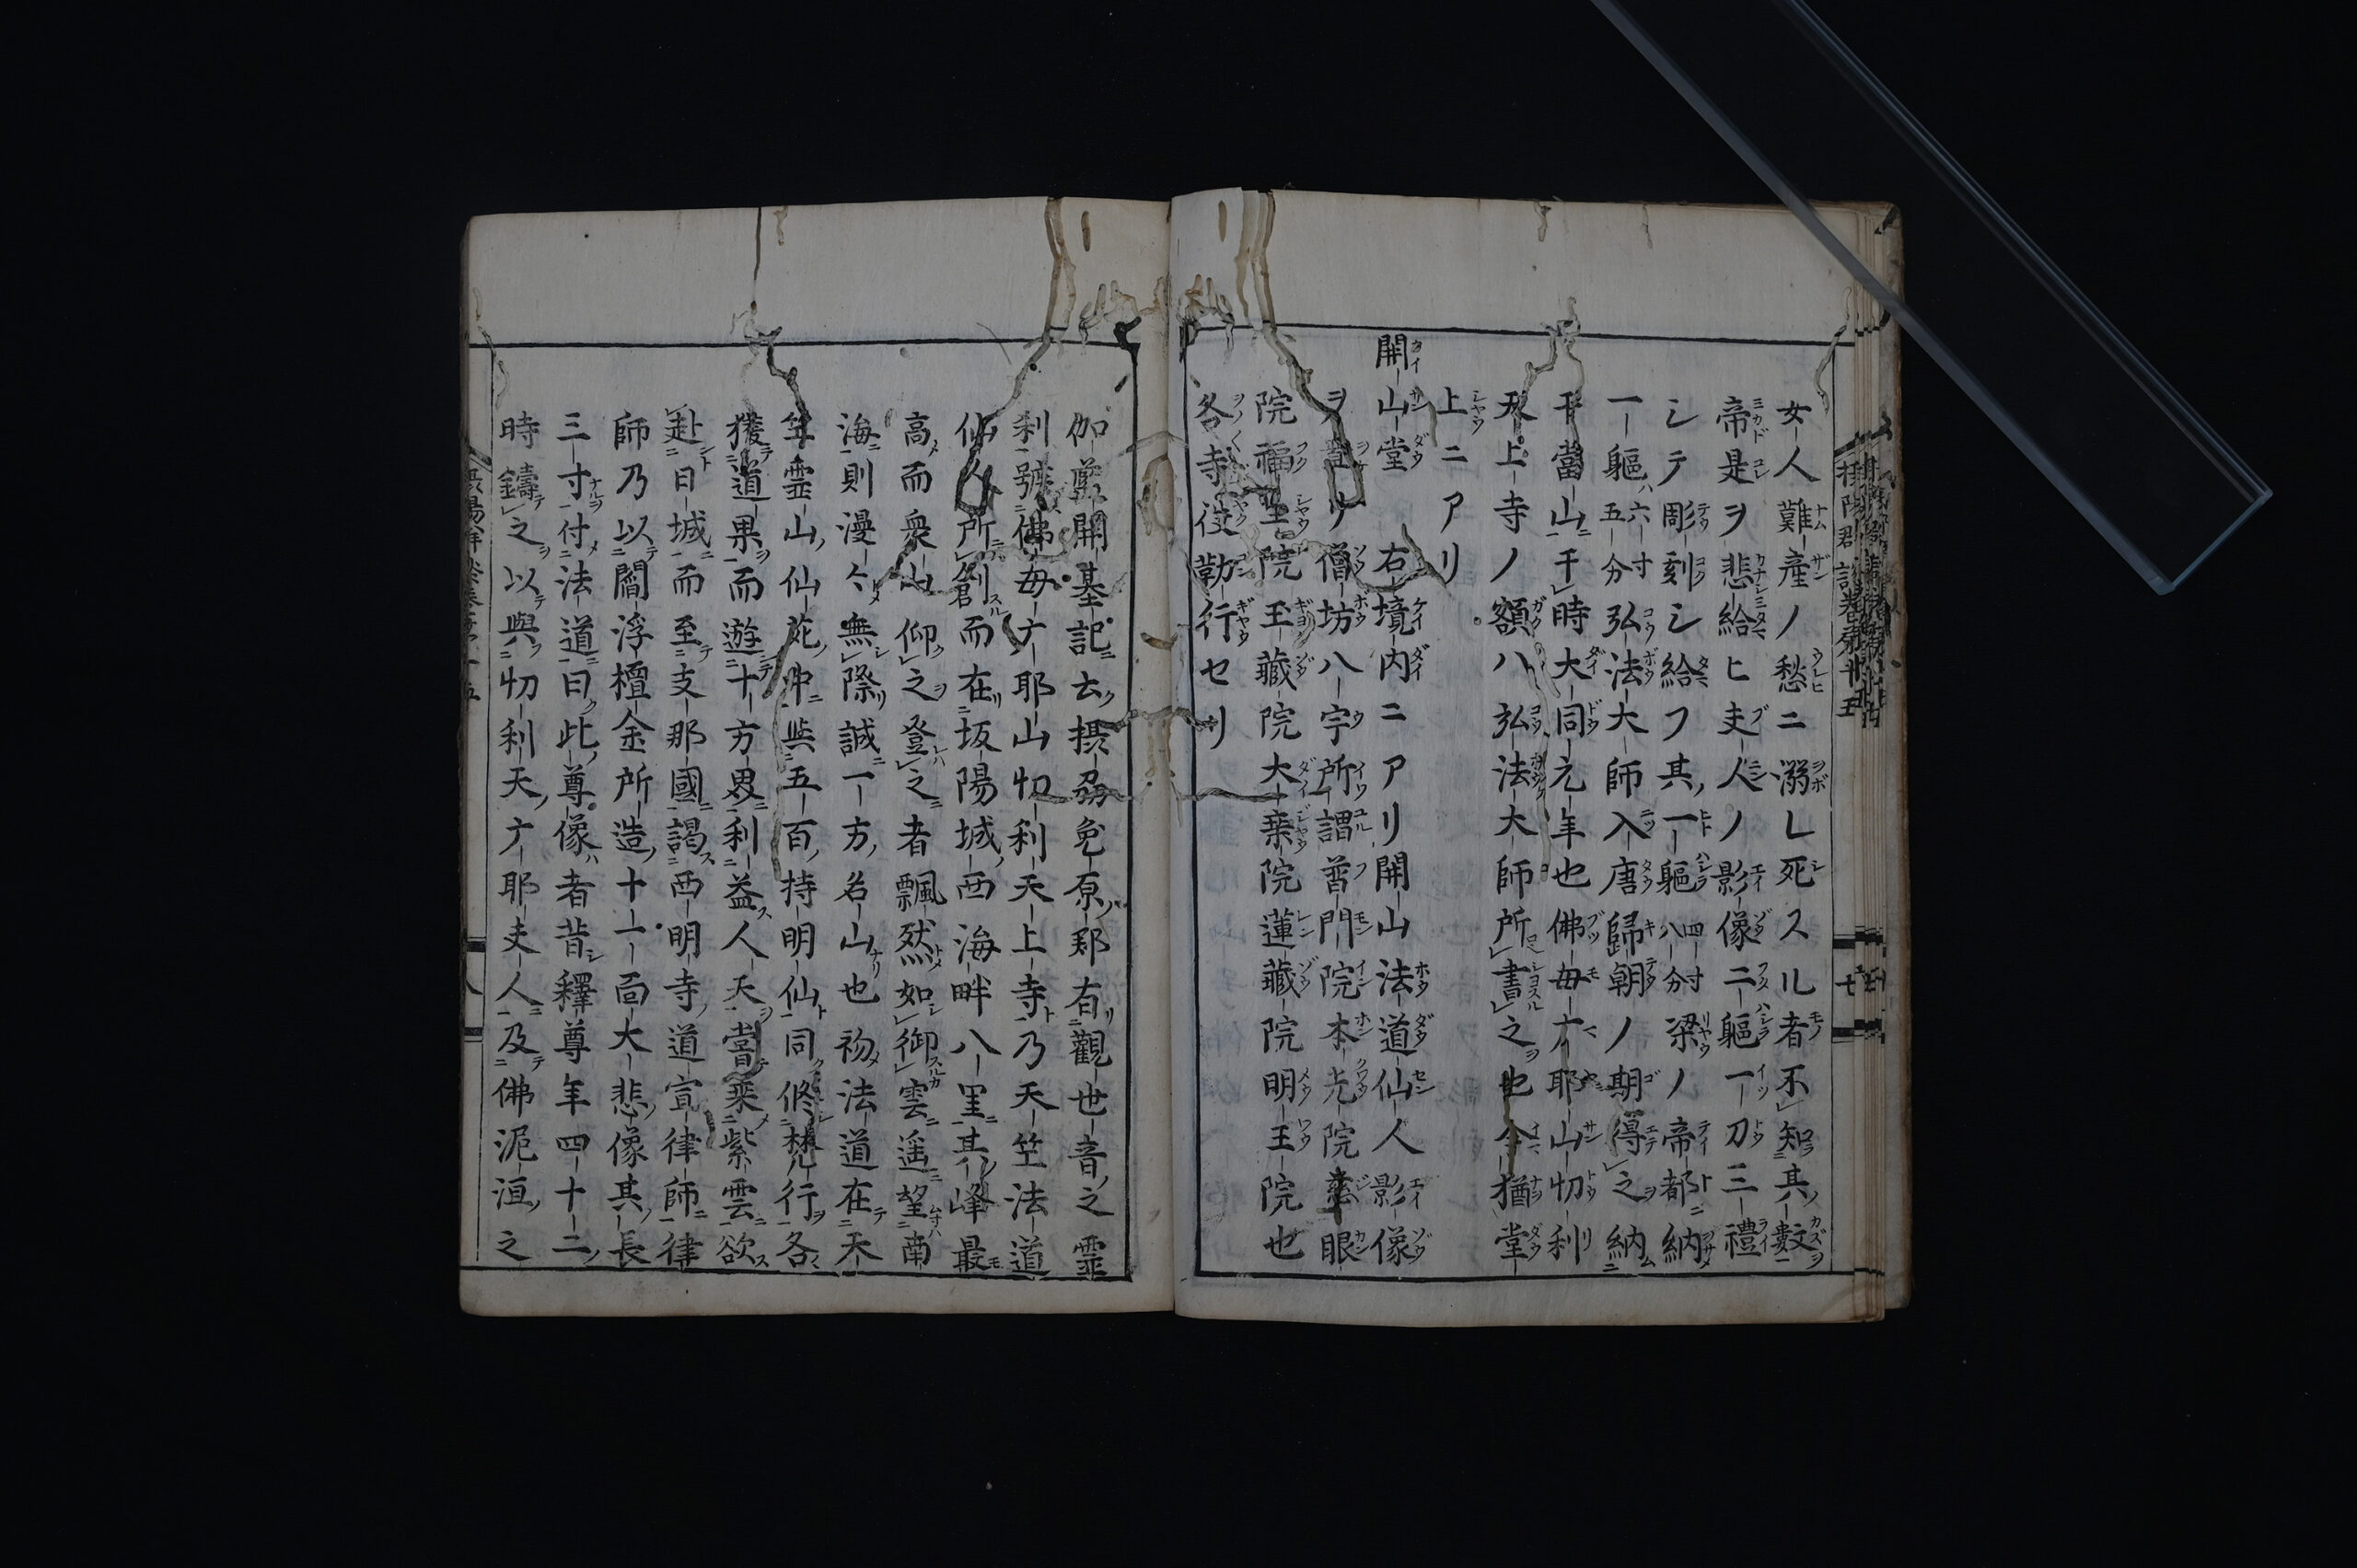 女人難產ノ愁ニ溺レ死スル者不知其數
帝是ヲ悲給ヒ夫人ノ影像二軀一刀三禮
シテ彫刻シ給フ其一軀四寸八分梁ノ帝都ニ納
一軀ハ六寸五分弘法大師入唐歸朝ノ期得之納
于當山于時大同元年也佛母广耶山忉利
天上寺ノ額ハ弘法大師所書之也今猶堂
上ニアリ
開山堂 右境内ニアリ開山法道仙人影像
ヲ置リ僧坊八宇所謂普門院本光院慈眼
院福聖院玉藏院大乗院蓮藏院明王院也
各寺役勤行セリ
伽藍開基記云摂刕兎原郡有觀世音之靈
刹號佛母广耶山忉利天上寺乃天竺法道
仙人所創而在坂陽城西海畔八里其峰最
高而衆山仰之登之者飄然如御雲遥望南
海則漫々無際誠一方名山也初法道在天
竺靈山仙苑中與五百持明仙同修梵行各
獲道果而遊十方界利益人天甞乗紫雲欲
赴日城而至支那國謁西明寺道宣律師律
師乃以閻浮檀金所造十一面大悲像其長
三寸付法道曰此尊像者昔釋尊年四十二
時鑄之以與忉利天广耶夫人及佛泥洹之